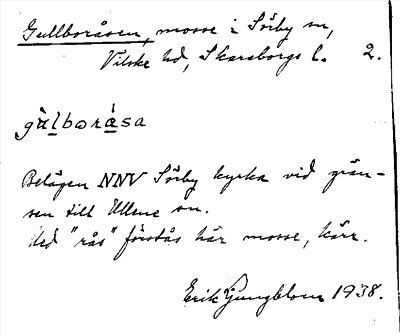 Gullboråsen, mosse i Sörby sn,
Vilske hd, Skaraborgs l. 2.
gùlborása
Belägen NNV Sörby kyrka vid grän-
sen till Ullene sn.
Med "rås" förstås här mosse, kärr.
Erik Ljungblom 1938.